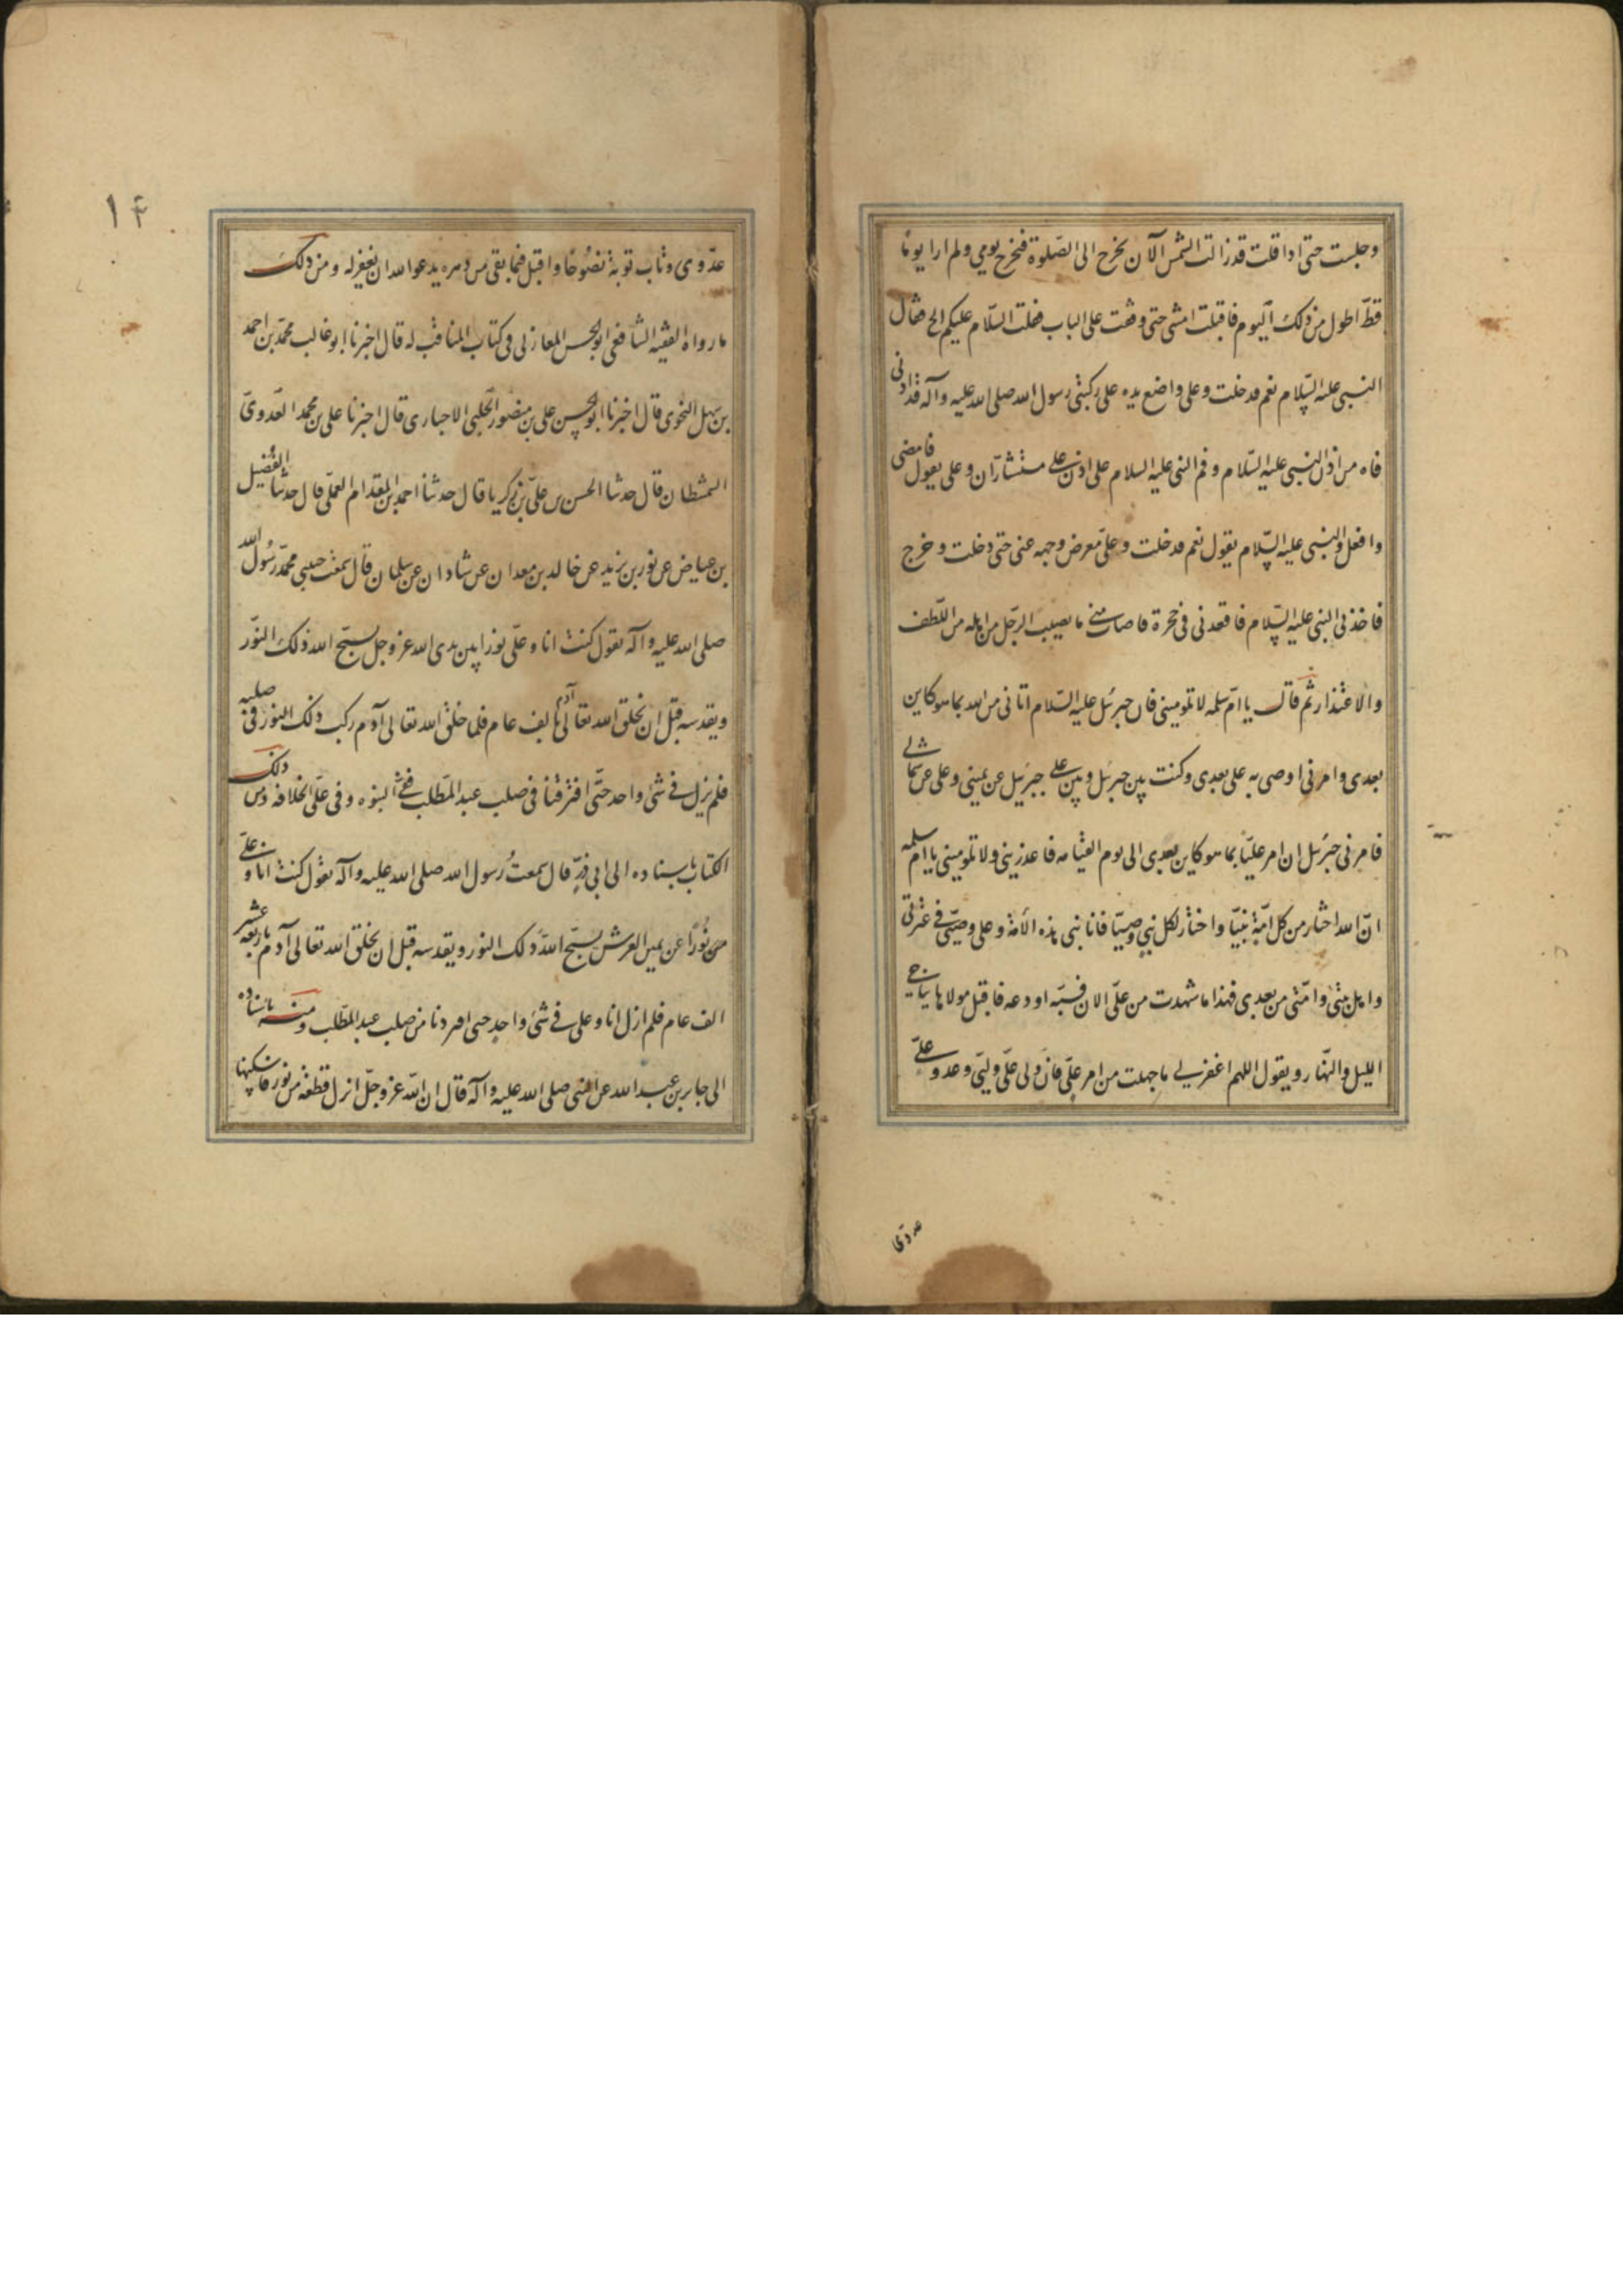 وجلست حتى اذا قلت قد زالت الشمس الآن يخرج الى الصّلوة فيخرج يومي ولم ار يوما
قطّ اطول من ذلك اليوم فاقبلت امشى حتى وقفت على الباب فقلت السّلام عليكم الج فقال
النبى عليه السّلام نعم فدخلت وعلى واضع يده على ركبتى رسول الله صلى الله عليه وآله قد ادنى
فاه من اذن النبى عليه السّلام وفم النبى عليه السلام على اذن على يتشاران وعلى يقول فامضى
وافعل والنبى عليه السّلام يقول نعم فدخلت وعلى معرض وجهه عنى حتى دخلت وخرج
فاخذنى النبى عليه السّلام فاقعدنى فى حجره فاصاب منى ما يصيب الرّجل من اهله من اللّطف
والاعتذار ثم قال يا امّ سلمه لا تلومينى فان جبرئيل عليه السّلام اتانى من الله بما هو كاين
بعدى وامرنى اوصى به على بعدى وكنت بين جبرئيل وبين على جبرئيل عن يمينى وعلى عن شمالى
فامرنى جبرئيل ان امر عليّا بما هو كاين بعدى الى يوم القيامه فاعذرينى ولا تلومينى يا امّ سلمه
انّ الله اختار من كل امّة نبيّا واختار لكل نبى وصيّا فانا نبى هذه الامّة وعلى وصيّى فى عترتى
واهل بيتى وامّتى من بعدى فهذا ما شهدت من علىّ الان فسبّه او دعه فاقبل مولاها يناجى
الليل والنّهار ويقول اللهم اغفر لى ما جهلت من امر علىّ فانّ ولى علىّ وليّى وعدو علىّ
عدوّى
١۴
عدّوى وتاب توبة نصُوحًا واقبل فيما بقى من دهره يدعو الله ان يغفر له ومن ذلك
ما رواه الفقيه الشافعى ابو الحسن المغازلى فى كتاب المناقب له قال اخبرنا ابو غالب محمّد بن احمد
بن سهل النحوى قال اخبرنا ابو الحسن على بن منصور الحلبى الاخبارى قال اخبرنا على بن محمد العدوىّ
الشمشطى قال حدثنا الحسن بن علىّ بن زكريا قال حدثنا احمد بن المقدام العجلى قال حدثنا الفُضيل
بن عياض عن ثور بن يزيد عن خالد بن معدان عن شاذان عن سلمان قال سمعت حبيبى محمّد رسُول الله
صلى الله عليه وآله يقول كنت انا وعلّى نورا بين يدى الله عز وجل يسبّح الله ذلك النّور
ويقدسه قبل ان يخلق الله تعالى آدم بالف عام فلما خلق الله تعالى آدم ركب ذلك النور فى صلبه
فلم نزل فى شىٔ واحد حتّى افترقنا فى صلب عبد المطّلب ففىّ النبوه وفى علّى الخلافه ومن ذلك
الكتاب باسناده الى ابى ذرّ قال سمعتُ رسول الله صلى الله عليه وآله يقول كنت انا وعلىّ
نُورًا عن يمين العرش يسبّح اللهَ ذلك النور ويقدسه قبل ان يخلق الله تعالى آدم باربعة عشر
الف عام فلم ازل انا وعلى فى شىٔ واحدٍ حتى افردنا من صلب عبد المطّلب ومنه باسناده
الى جابر بن عبد الله عن النبى صلى الله عليه وآله قال ان الله عزوجلّ انزل قطعة من نور فاسكنها